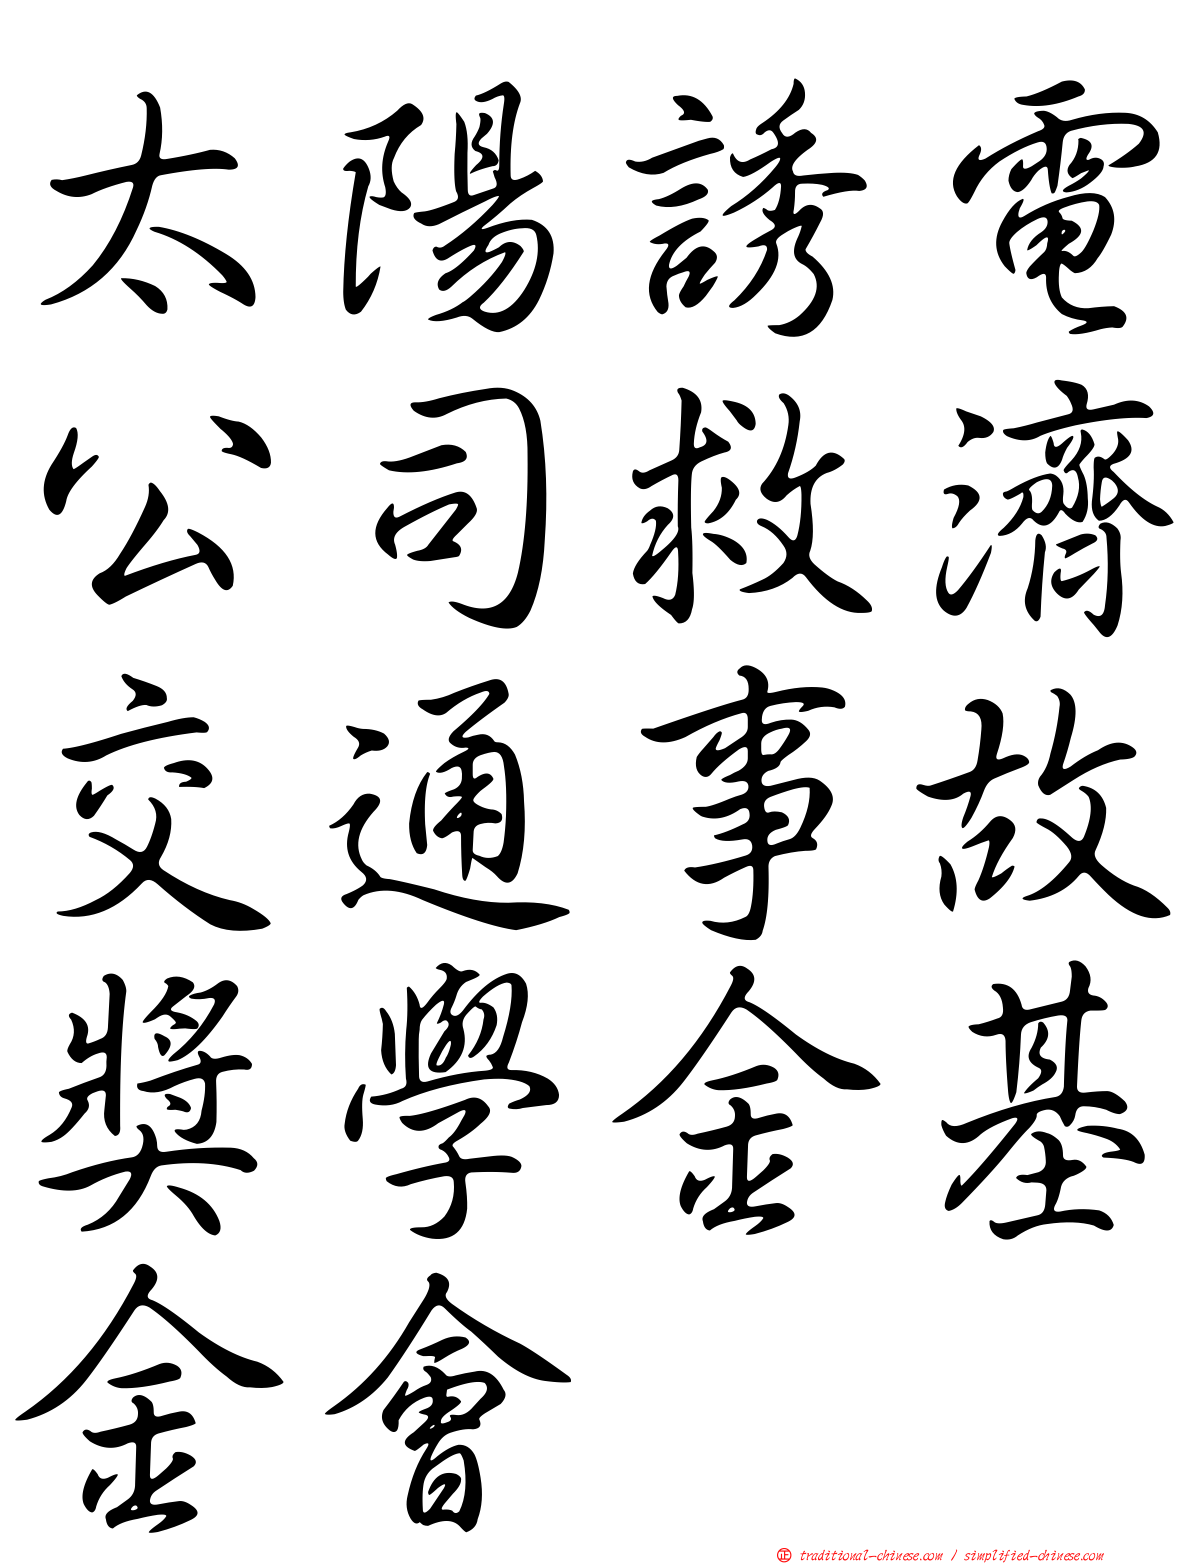 太陽誘電
公司救濟
交通事故
獎學金基
金會
正 traditional-chinese.com / simplified-chinese.com